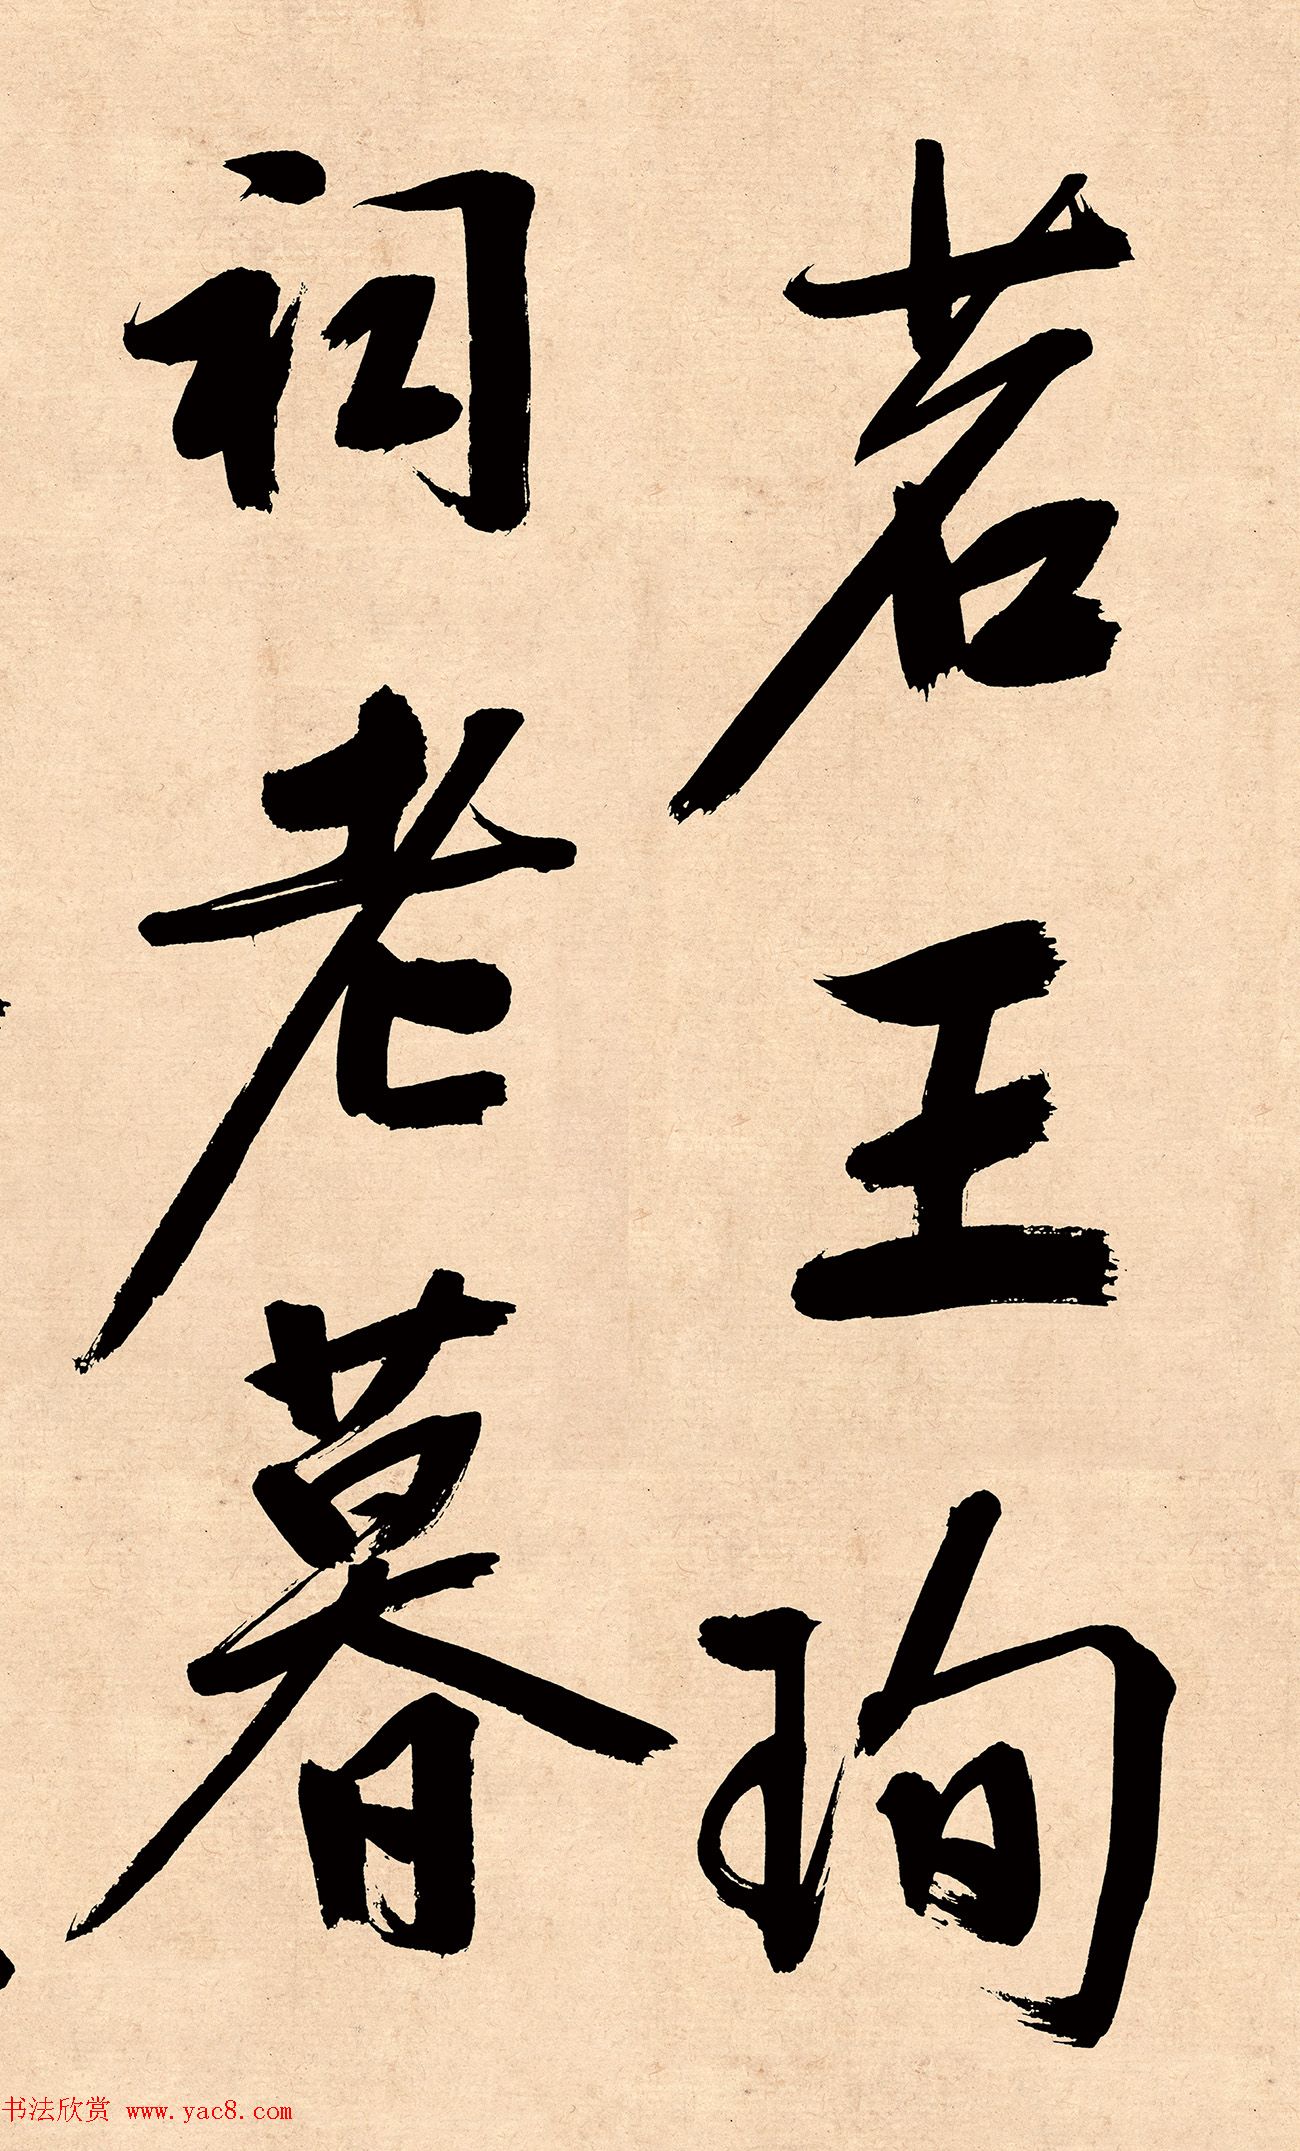 若王珣
祠老暮
书法欣赏 www.yac8.com